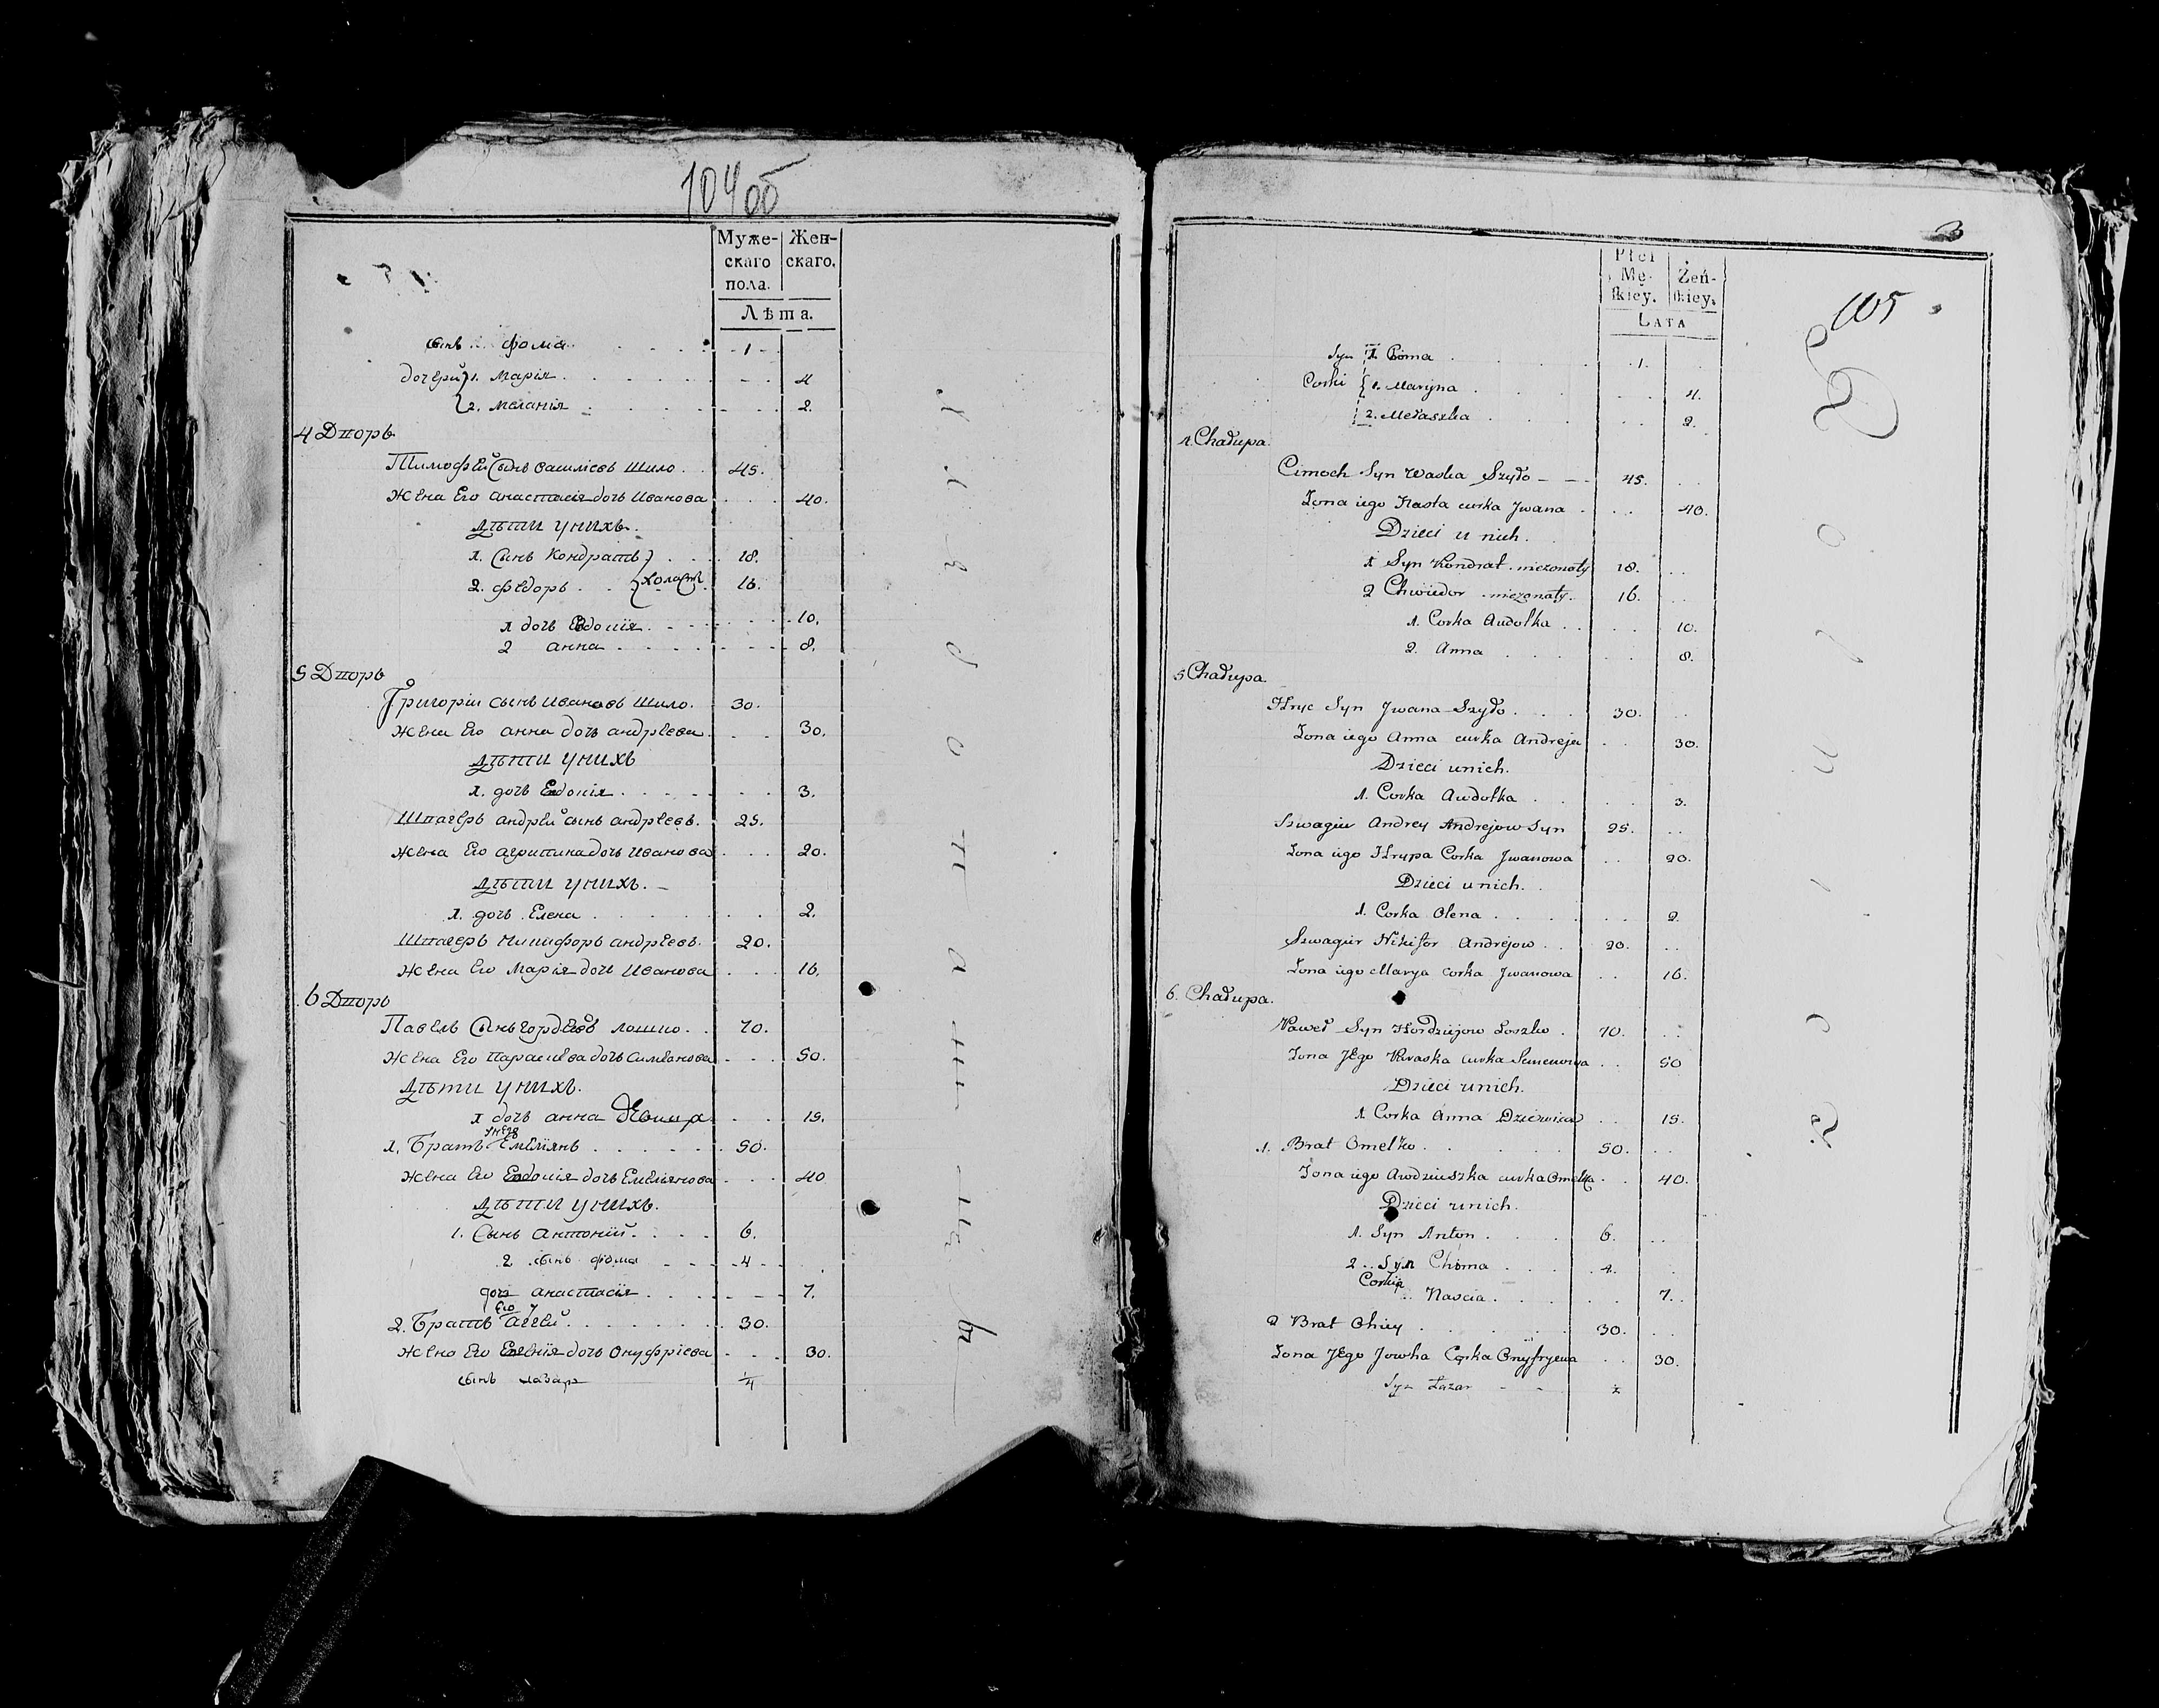 104об
Муже-
скаго
пола.
Жен-
скаго.
Лѣта.
сынъ 1. фома 1
дочери 1. Марія 4
2. Меланія 2.
4 Дворъ
Тимофей сынъ Василіевъ Шило 45.
Жена Его анастасія дочь Иванова 40.
Дѣти унихъ.
1. Сынъ Кондратъ 18.
2. Федоръ холасты 16.
1 дочь Евдокія 10.
2 анна 8.
5 Дворъ
Григорій сынъ Ивановъ Шило. 30.
Жена Его анна дочь андрѣева 30.
Дѣти унихъ
1. дочь Евдокія 3.
Швагеръ андрей сынъ андрѣевъ. 25.
Жена Его агрипина дочь Иванова 20.
Дѣти унихъ.
1. дочь Елена 2.
Швагеръ Никифоръ андрѣевъ. 20.
Жена Его Марія дочь Иванова 16.
6 Дворъ
Павелъ Сынъ гордѣевъ лошко 70.
Жена Его Параскева дочь Симеонова 50.
Дѣти унихъ.
1 дочь анна девица 15.
1. Братъ унего Емеліянъ 50.
Жена Его Евдокія дочь Емеліянова 40
Дѣти унихъ.
1. Сынъ Антоній 6.
2 сынъ фома 4
дочь анастасія 7.
2. Братъ Его аггей 30.
Жена Его дочь Онуфріева 30.
сынъ лазарь 1/4
3
105
Płci
Mę-
skiey.
Żeń-
skiey.
Lata
Syn 1. Choma 1.
Corki 1. Maryna 4.
2. Mełaszka 2.
4. Chałupa
Cimoch Syn Waska Szydo 45.
Zona iego Nasta curka Jwana 40.
Dzieci u nich.
1 Syn Kondrat niezonaty 18.
2 Chwiedor niezonaty. 16.
1. Corka Audotka 10.
2. Anna 8.
5 Chałupa
Hryc Syn Jwana Szydo 30.
Zona iego Anna curka Andreja 30.
Dzieci unich.
1. Corka Awdotka 3.
Szwagier Andrey Andrejow Syn 25.
Zona iego Hrypa Corka Jwanowa 20.
Dzieci unich.
1. Corka Olena 2.
Szwagier Nikifor Andrejow 20.
Zona iego Marya Corka Jwanowa 16.
6. Chałupa.
Paweł Syn Hordziejow Loszko 70.
Zona Jego Paraska curka Semenowa 50
Dzieci unich.
1. Corka Anna Dziewica 15.
1. Brat Omelko 50.
Zona iego Awdziuszka curka Omelka 40.
Dzieci unich.
1. Syn Anton 6.
2. Syn Choma 4.
Corka Nascia 7.
2 Brat Ohiey 30.
Zona Jego Jowha Corka Onyfryewa 30.
Syn Łazar